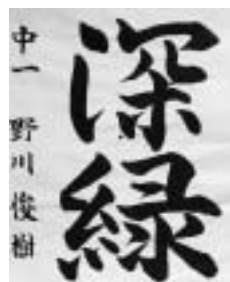 深緑
中一 野川俊樹